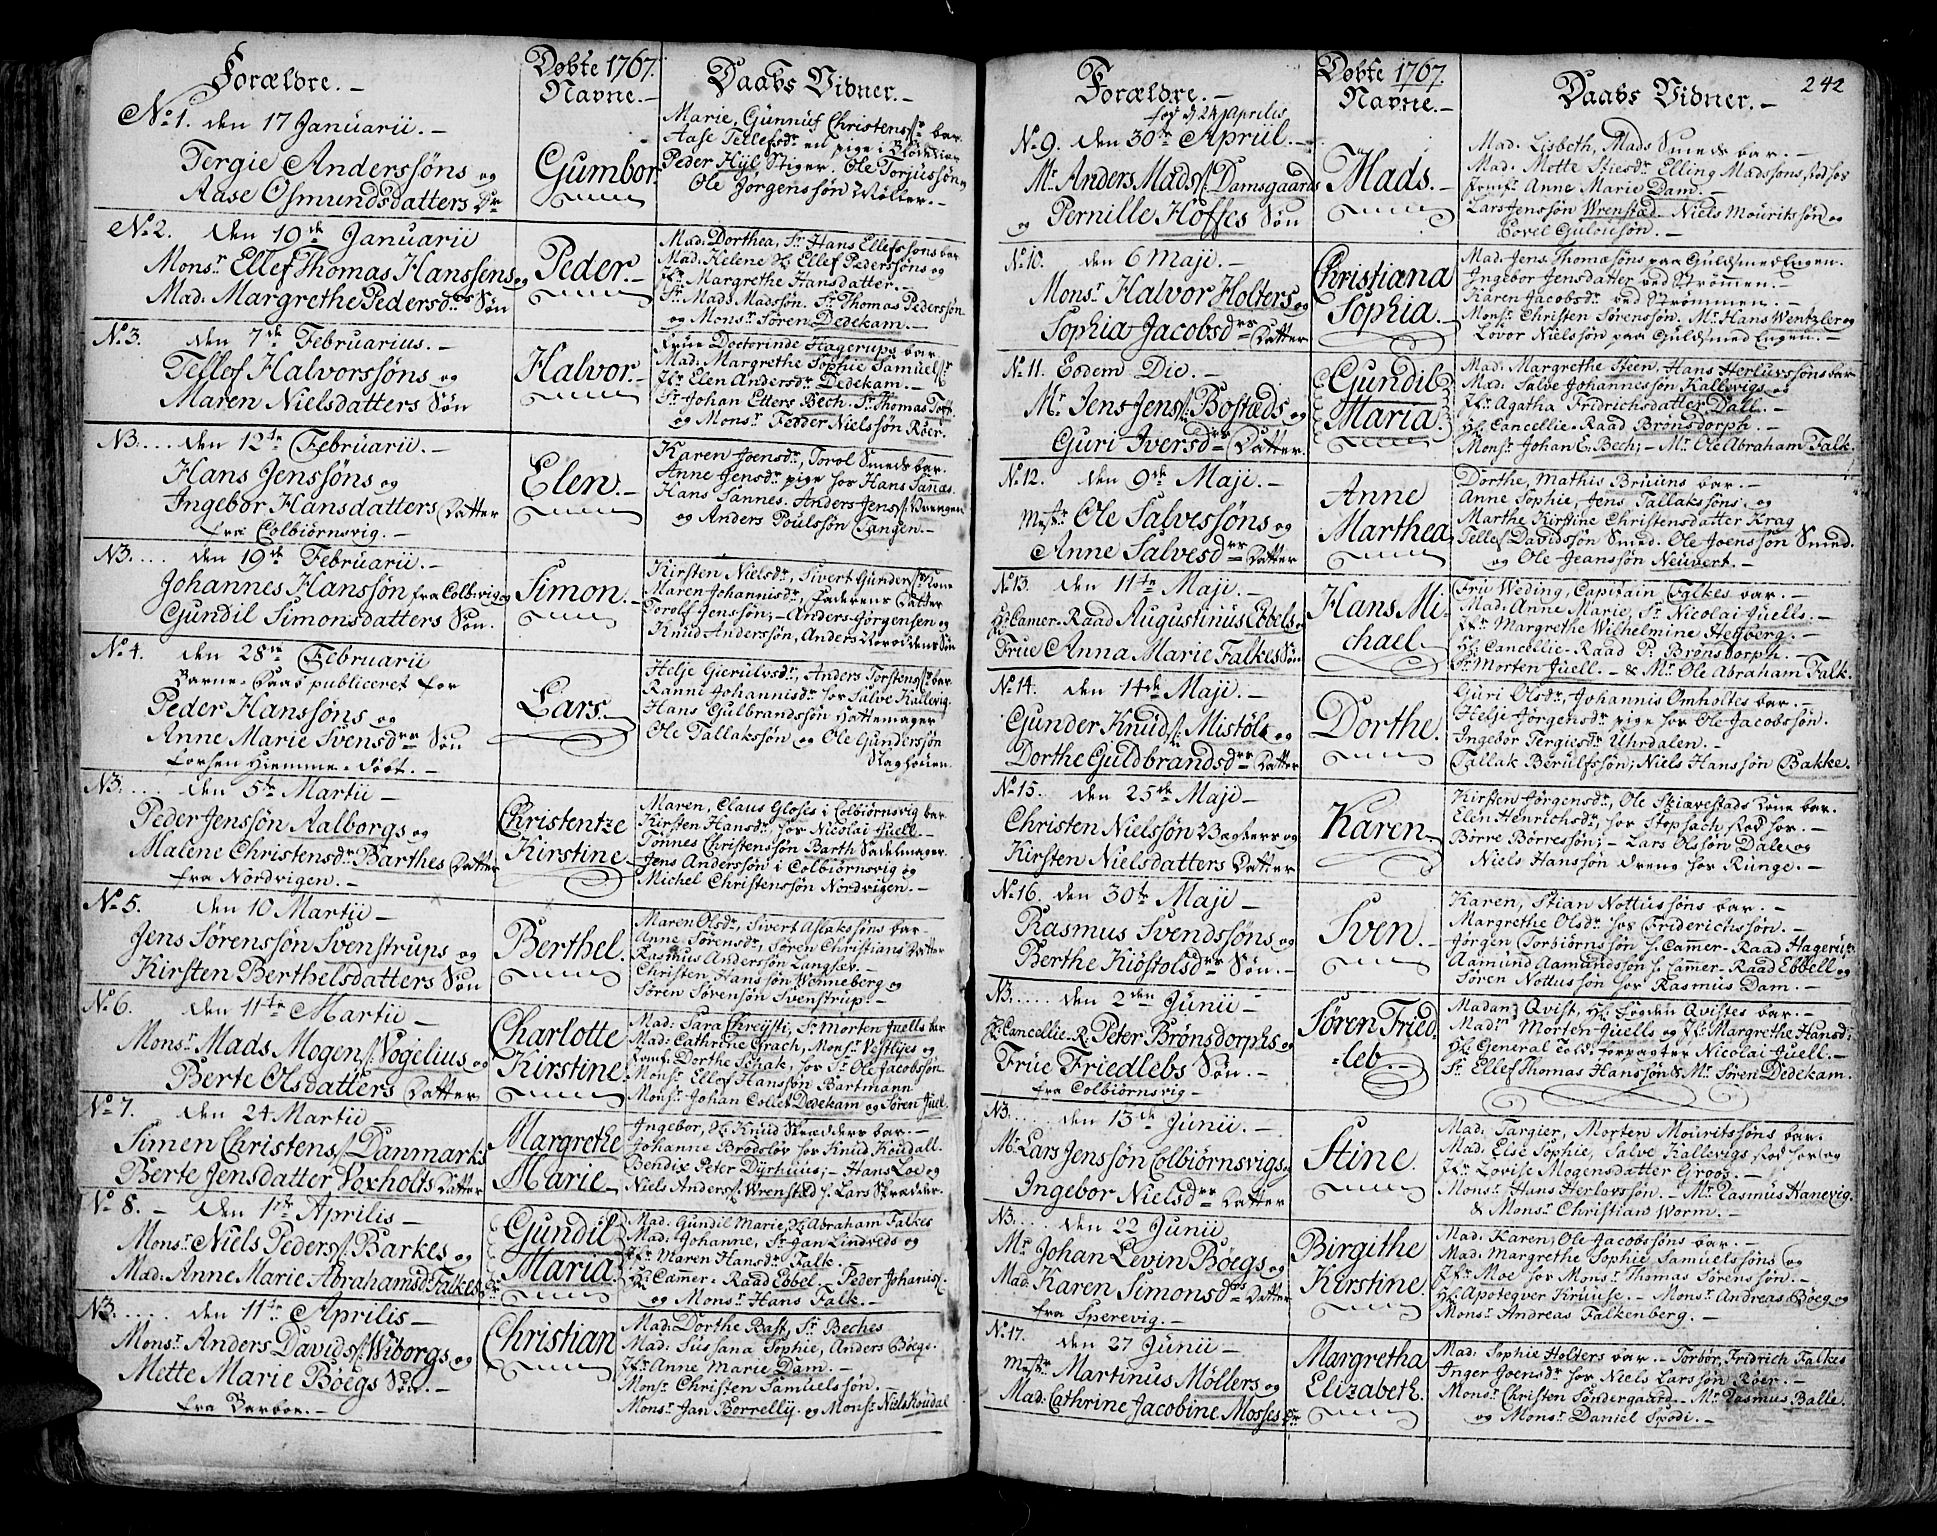 Forældre. -
Døbte 1767.
Navne. -
Daabs Vidner. -
No 1. den 17 Januarii. -
Tergie Anderssøns og
Aase Osmundsdatters Dr
Gumbor.
Marie, Gunnuf Christens/: bar.
Aase Tellefsdr en pige i
Peder Hyll Stiger. Ole Torjussøn
Ole Jørgenssøn Møller. -
No 2. den 19de Januarii
Monsr Ellef Thomas Hanssens og
Mad: Margrethe Pedersdrs Søn
Peder. -
Mad: Dorthea, Sr Hans Ellefssøns bar
Mad: Helene Ellef Pederssøns og
Jfr Margrethe Hansdatter. -
Sr Mads Madssøn. Sr Thomas Pederssøn
og Monsr Søren Dedekam. -
No 3. den 7de Februarius. -
Tellof Halvorssøns og
Maren Nielsdatters Søn
Halvor. -
Frue Doctorinde Hagerups bar
Mad: Margrethe Sophie Samuels/:
Jfr Elen Andersdr Dedekam. -
Sr Johan Etters Bech. Sr Thomas
og Monsr Fedder Nielssøn Röer. -
N3. . . . den 12te Februarii. -
Hans Jenssøns og
Ingebor Hansdatters Datter
fra Colbiørnsvig. -
Elen. -
Karen Joensdr, Torol Smeds bar.
Anne Jensdr pige hos Hans Sannæs.
Hans Sannes. Anders Jens/:
og Anders Poulssøn Tangen. -
N3. . . . den 19de Februarii. -
Johannes Hanssøn fra Colbivig og
Gundil Simonsdatters Søn.
Simon. -
Kirsten Nielsdr, Sivert Gunders/: Kone
Maren Johannisdr, Faderens Datter
Torolf Jenssøn; - Anders Jørgensen og
Knud Anderssøn, Anders
No 4. den 28de Februarii
Barne-Daab publiceret for
Peder Hanssøns og
Anne Marie Svensdrs Søn
forhen Hiemme-Døbt. -
Lars. -
Helje Gierulvsdr, Anders Torstens/: bar
Ranni Johannisdr hos Salve Kallevig.
Hans Gulbrandssøn Hattemager
Ole Tallakssøn og Ole Gunderssøn
N3. . . . den 5te Martii -
Peder Jenssøn Aalborgs og
Malene Christensdr Barthes Datter
fra Nordvigen. -
Christentze
Kirstine
Maren, Claus Gloses i Colbiørnsvig bar
Kirsten Hansdr hos Nicolai Juell. -
Tønnes Christenssøn Barth Sadelmager.
Jens Anderssøn i Colbiørnsvig og
Michel Christenssøn Nordvigen. -
No 5. den 10 Martii -
Jens Sørenssøn Svenstrups og
Kirsten Berthelsdatters Søn
Berthel.
Maren Olsdr, Sivert Aslakssøns bar. -
Anne Sørensdr, Søren Christians Datter
Rasmus Anderssøn Langsæ. -
Christen Hanssøn Wenneberg og
Søren Sørensøn Svenstrup. -
No 6. den 11te Martii -
Monsr Mads Mogens/: Vogelius og
Berte Olsdatters Datter
Charlotte
Kirstine
Mad: Sara Chreysti, Sr Morten Juells bar
Mad: Cathrine Crach, Monsr Vestlyes og
Jomfr Dorthe Schak, hos Sr Ole Jacobssøn
Monsr Ellef Hanssøn Bartmann
Monsr Johan Collet Dedekam og Søren Juel.
No 7. den 24 Martii
Simen Christens/: Danmarks
Berte Jensdatter Voxholts Datter
Margrethe
Marie
Ingebor, Knud Skrædders bar -
Johanne Brodsløv hos Knud Koudall
Bendix Peter Dyrhuus; - Hans Loe og
Niels Anders/: Wrenstæd h: Lars Skræder.
No 8. - den 1ste Aprilis -
Monsr Niels Peders/: Barkes og
Mad: Anne Marie Abrahamsd: Falkes Dr
Gundil
Maria.
Mad: Gundil Marie, Abraham Falkes
Mad: Johanne, Sr Jan Lindveds og
Jfr Maren Hansdr Falk. -
Hr Camer-Raad Ebbel - Peder Johanis/:
og Monsr Hans Falk. -
N3. . . . den 11te Aprilis -
Monsr Anders Davids/: Wiborgs og
Mette Marie Böegs Søn. -
fra Barboe. -
Christian
Mad: Dorthe Bast, Sr Beches
Mad: Sussana Sophie, Anders Böegs.
Jfr Anne Marie Dam. -
Monsr Christen Samuelssøn. -
Monsr Jan Borrelly. og Monsr Niels Koudal
Forældre. -
Døbte 1767.
Navne. -
Daabs Vidner. -
242
fød d. 24 Aprilis
No 9. den 30te Apriil -
Mr Anders Mads/: Damsgaards
og Pernille Höffes Søn
Mads. -
Mad. Lisbeth, Mads Smeds bar. -
Mad: Mette Stiesdr Elling Madssøns
Jomfr Anne Marie Dam. -
Lars Jenssøn Wrenstæd. Niels Mouritssøn og
Povel Gulovsøn. -
No 10. den 6 Maji. -
Monsr Halvor Holters og
Sophia Jacobsdrs Datter
Christiana
Sophia. -
Mad. Jens Thomæsøns paa Guldsmed Engen.
Ingebor Jensdatter ved Strømen. -
Karen Jacobsdr ved Strømmen. -
Monsr Christen Sørenssøn. Mr Hans Wentzler og
Lovor Nielssøn paa Guldsmed Engen. -
No 11. Eodem Die. -
Mr Jens Jens/: Bostæds og
Guri Iversdrs Datter.
Gundil
Maria.
Mad. Margrethe Steen, Hans Herluvssøns bar
Mad. Salve Johannessøn Kallevigs og
Jfr Agatha Fridrichsdatter Dall. -
Hr Cancellie-Raad Brønsdorph. -
Monsr Johan E. Bech; - Mr Ole Abraham Falk.
No 12. den 9de Maji. -
Mestr Ole Salvessøns og
Anne Salvesdrs Datter
Anne
Marthea.
Dorthe, Mathis Bruuns bar. -
Anne Sophie, Jens Tallakssøns og
Marthe Kirstine Christensdatter Krag
Tellef Davidssøn Smed. Ole Joenssøn Smed.
og Ole Jeanssøn Neuvert. -
No 13. den 11te Maji. -
Hr Camer-Raad Augustinus Ebbels og
Frue Anna Marie Falkes Søn
Hans Mi-
chael. -
Fru Weding, Capitain Falkes bar. -
Mad: Anne Marie, Sr Nicolai Juells. -
Jfr Margrethe Wilhelmine Hetberg. -
Hr Cancellie-Raad P: Brønsdorph. -
Sr Morten Juell. - & Mr Ole Abraham Falk.
No 14. den 14de Maji. -
Gunder Knud/: Mistøls og
Dorthe Guldbrandsdrs Datter
Dorthe.
Guri Olsdr, Johannis Omholtes bar. -
Helje Jørgensdr pige hos Ole Jacobssøn.
Ingebor Tergiesdr Uhrdalen. -
Tallak Berulfssøn; Niels Hanssøn Bakke.
No 15. den 25de Maji -
Christen Nielssøn Bagkerr og
Kirsten Nielsdatters Datter
Karen
Kirsten Jørgensdr, Ole Skiævestads Kone bar.
Elen Henrichsdr, hos Stephach
Börre Börressøn; - Lars Olssøn Dale og
Niels Hanssøn Dreng hos Runge. -
No 16. den 30te Maji -
Rasmus Svendssøns og
Berthe Kiöstolsdrs Søn. -
Sven. -
Karen, Stian Nottussøns bar. -
Margrethe Olsdr hos Friderichssøn. -
Jørgen Torbiørnssøn h. Camer-Raad Hagerups
Aamund Aamundssøn h: Camer-Raad Ebbell og
Søren Nottussøn hos Rasmus Dam. -
N3. . . . den 2den Junii -
Hr Cancellie-R. Peter Brønsdorphs og
Frue Friedlebs Søn. -
fra Colbiørnsvig -
Søren Fried
=leb. -
Madan Qvist, Hr Fogden Qvistes bar. -
Madm Morten Juells og Jfr Margrethe Hansd:
Hr General Told-forpagter Nicolai Juell. -
Sr Ellef Thomas Hanssøn & Mr Søren Dedekam.
N3. . . . den 13de Junii. -
Mr Lars Jenssøn Colbiørnsvigs og
Ingebor Nielsdrs Datter
Stine.
Mad: Targier, Morten Mouritssøns bar.
Mad: Else Sophie, Salve Kallevigs og
Jfr Lovise Mogensdatter Groos. -
Monsr Hans Herlovssøn. - Mr Rasmus Hanevig.
& Monsr Christian Worm. -
N3. . . . den 22 Junii
Mr Johan Levin Böegs og
Mad: Karen Simonsdrs Datter
fra Sperevig. -
Birgithe
Kirstine
Mad: Karen, Ole Jacobssøns bar. -
Mad: Margrethe Sophie Samuelssøns og
Jfr Moe hos Monsr Thomas Sørenssøn. -
Hr Apoteqver Kruuse. - Monsr Andreas Böeg og
Monsr Andreas Falkenberg. -
No 17. den 27 Junii -
Mestr Martinus Möllers og
Mad: Cathrine Jacobine Mosses Dr
Margretha
Elizabeth.
Mad: Sophie Holters bar. - Torbor, Fridrich Falkes
Inger Joensdr hos Niels Larssøn Röer. -
Monsr Christen Søndergaard. - Mr Rasmus Balle.
og Monsr Daniel Spodi. -